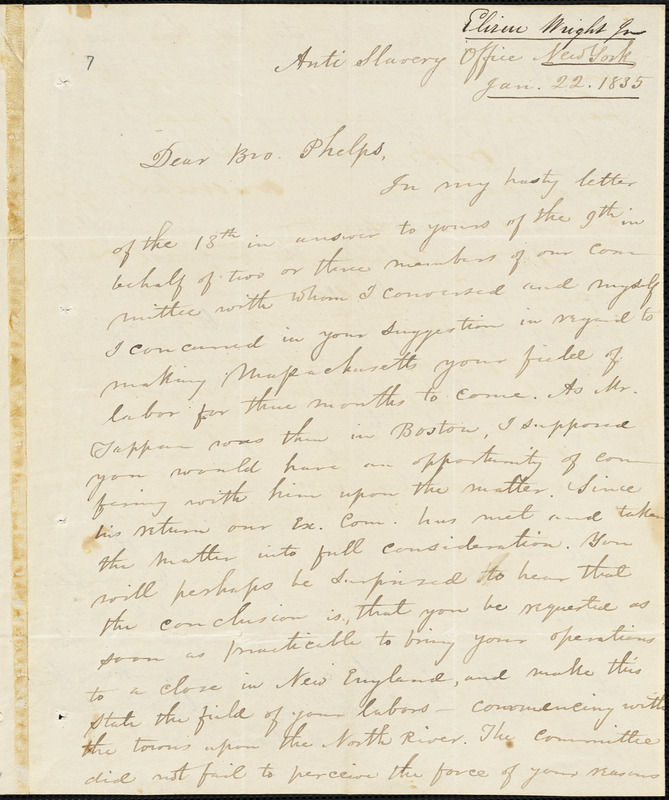 Elizur Wright Jr
7
Anti Slavery Office New York
Jan. 22. 1835
Dear Bro. Phelps,
In my hasty letter
of the 18th in answer to yours of the 9th in
behalf of two or three members of our com
mittee with whom I conversed and myself
I concurred in your suggestion in regard to
making Massachusetts your field of
labor for three months to come. As Mr.
Tappan was then in Boston, I supposed
you would have an opportunity of con
fering with him upon the matter. Since
his return our Ex. Com. has met and taken
the matter into full consideration. You
will perhaps be surprised to hear that
the conclusion is, that you be requested as
soon as practicable to bring your operations
to a close in New England, and make this
State the field of your labors – commencing with
the towns upon the North River. The committee
did not fail to perceive the force of your reasons